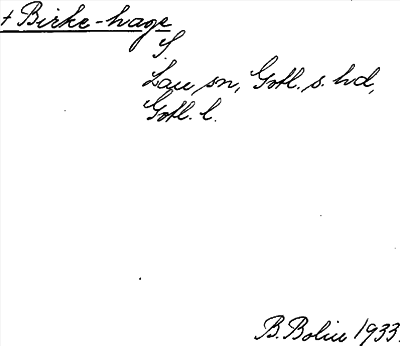 + Birke-hage
S.
Lau, sn, Gotl. s. hd,
Gotl. l.
B. Bolin 1933.